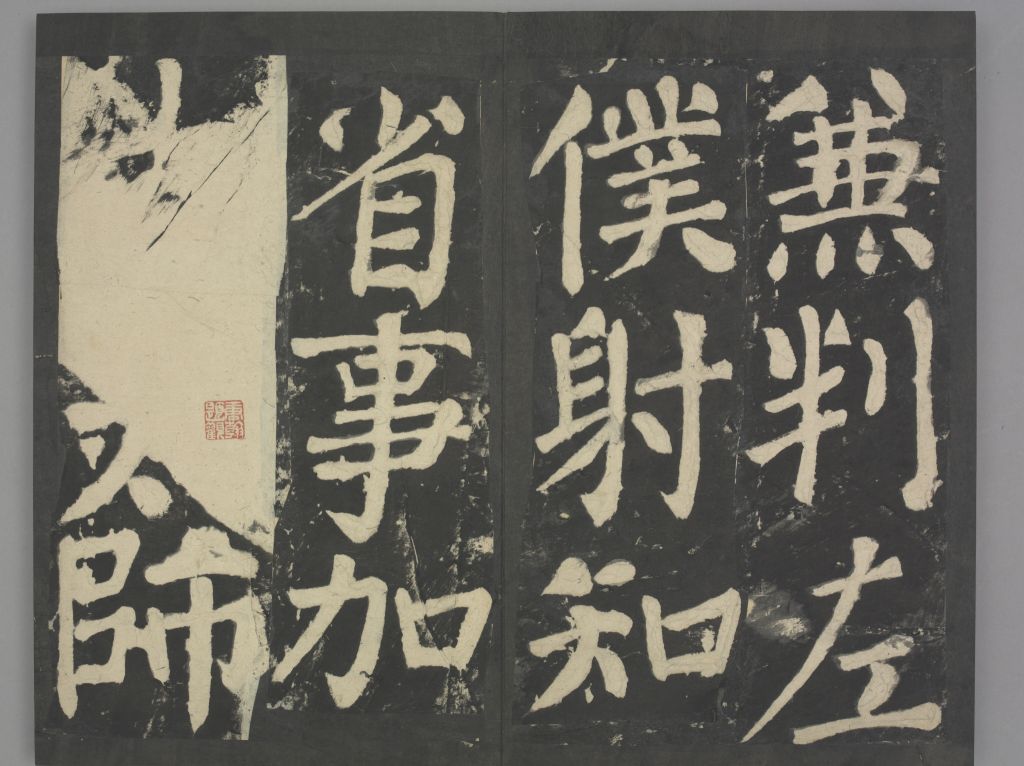 兼判左
僕射知
省事加
太師